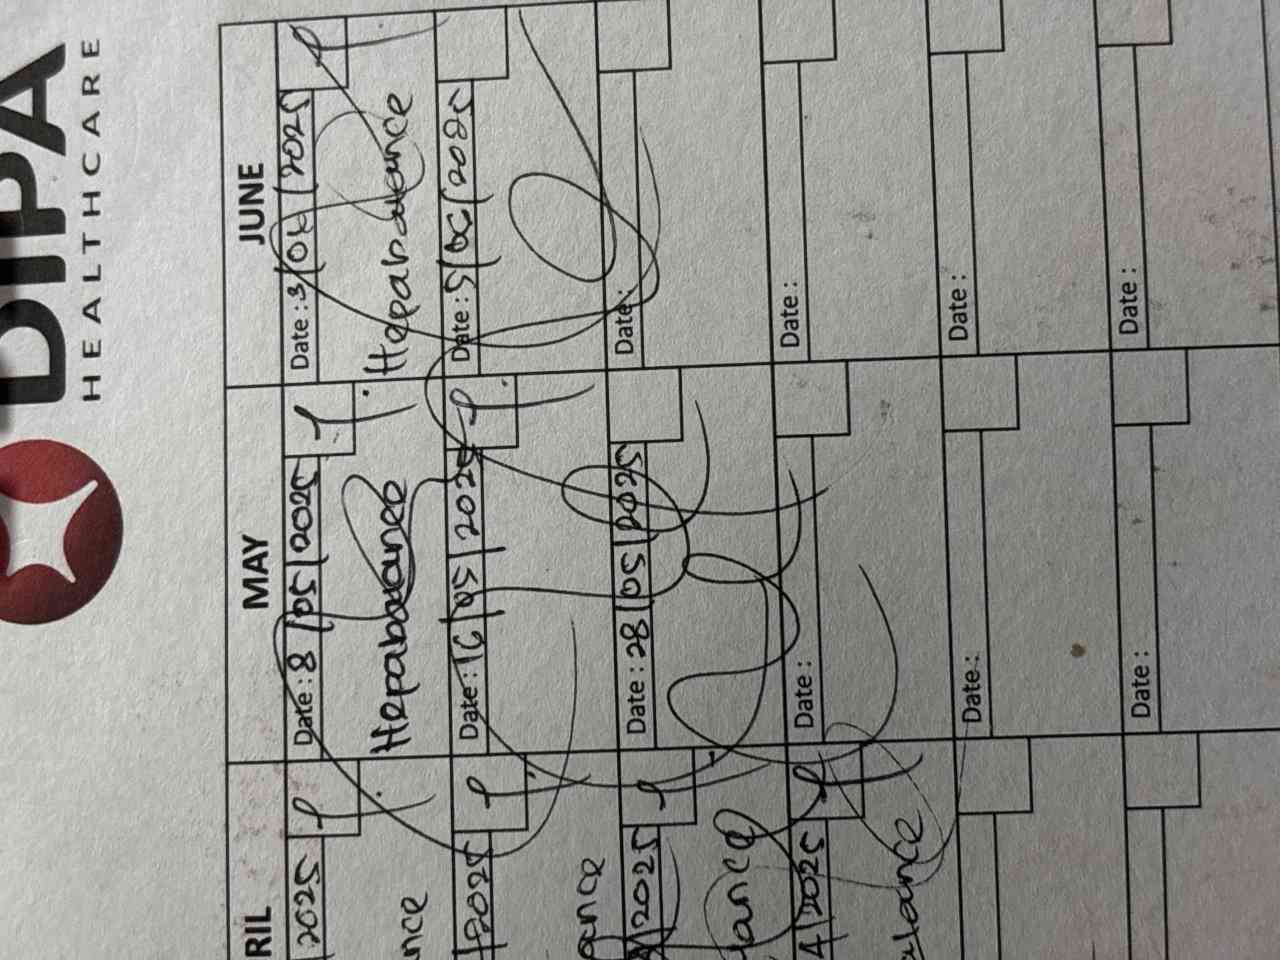 DIPA
HEALTHCARE
RIL
MAY
JUNE
2025
Date : 8/05/2025
Date : 3/06/2025
nce
Hepabalance
Hepabalance
/2025
Date : 16/05/2025
Date : 5/06/2025
ance
/2025
Date : 28/05/2025
Date :
lance
4/2025
Date :
Date :
alance
Date :
Date :
Date :
Date :